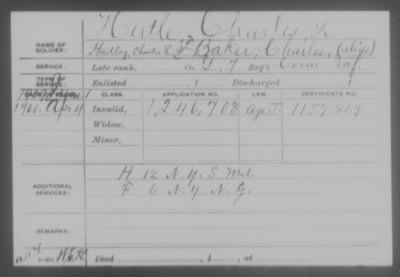 Hartley, Charles L.
NAME OF SOLDIER: Hartley, Charles L. Baker, Charles, (alias)
SERVICE: Late rank, Co. I, 7 Reg't Conn Inf
TERM OF SERVICE: Enlisted , 1 Discharged , 1
CLASS. APPLICATION NO. LAW. CERTIFICATE NO.
1901. Apr 4 Invalid, 1,246,703 1157869
Widow,
Minor,
ADDITIONAL SERVICES:
H 12 N.Y. S. Mil
F 6 N.Y. N.G.
REMARKS:
Died , 1 , at